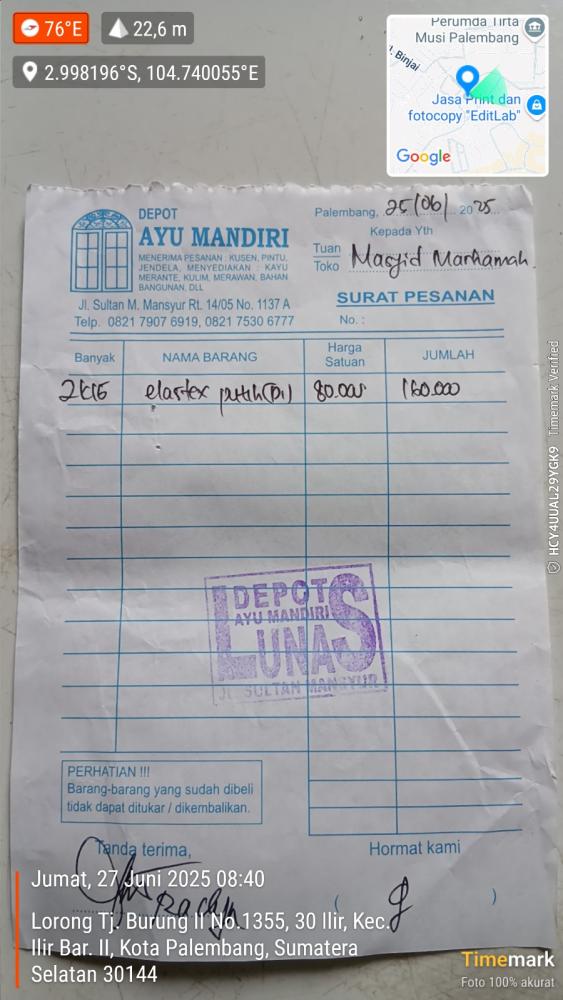 76°E
22,6 m
2.998196°S, 104.740055°E
Perumda Tirta
Musi Palembang
Binjai
Jasa Print dan
fotocopy "EditLab"
Google
DEPOT
AYU MANDIRI
MENERIMA PESANAN : KUSEN, PINTU,
JENDELA, MENYEDIAKAN : KAYU
MERANTE, KULIM, MERAWAN, BAHAN
BANGUNAN, DLL
Jl. Sultan M. Mansyur Rt. 14/05 No. 1137 A
Telp. 0821 7907 6919, 0821 7530 6777
Palembang, 25/06/ 2025
Kepada Yth
Tuan
Toko Masjid Marhamah
SURAT PESANAN
No. :
Banyak NAMA BARANG Harga Satuan JUMLAH
elastex putih 80.000 160.000
DEPOT
AYU MANDIRI
LUNAS
JL SULTAN MANSYUR
PERHATIAN !!!
Barang-barang yang sudah dibeli
tidak dapat ditukar / dikembalikan.
Tanda terima, Hormat kami
( )
Jumat, 27 Juni 2025 08:40
Lorong Tj. Burung II No.1355, 30 Ilir, Kec.
Ilir Bar. II, Kota Palembang, Sumatera
Selatan 30144
Timemark
Foto 100% akurat
HCY4UUAL29YGK9 Timemark Verified